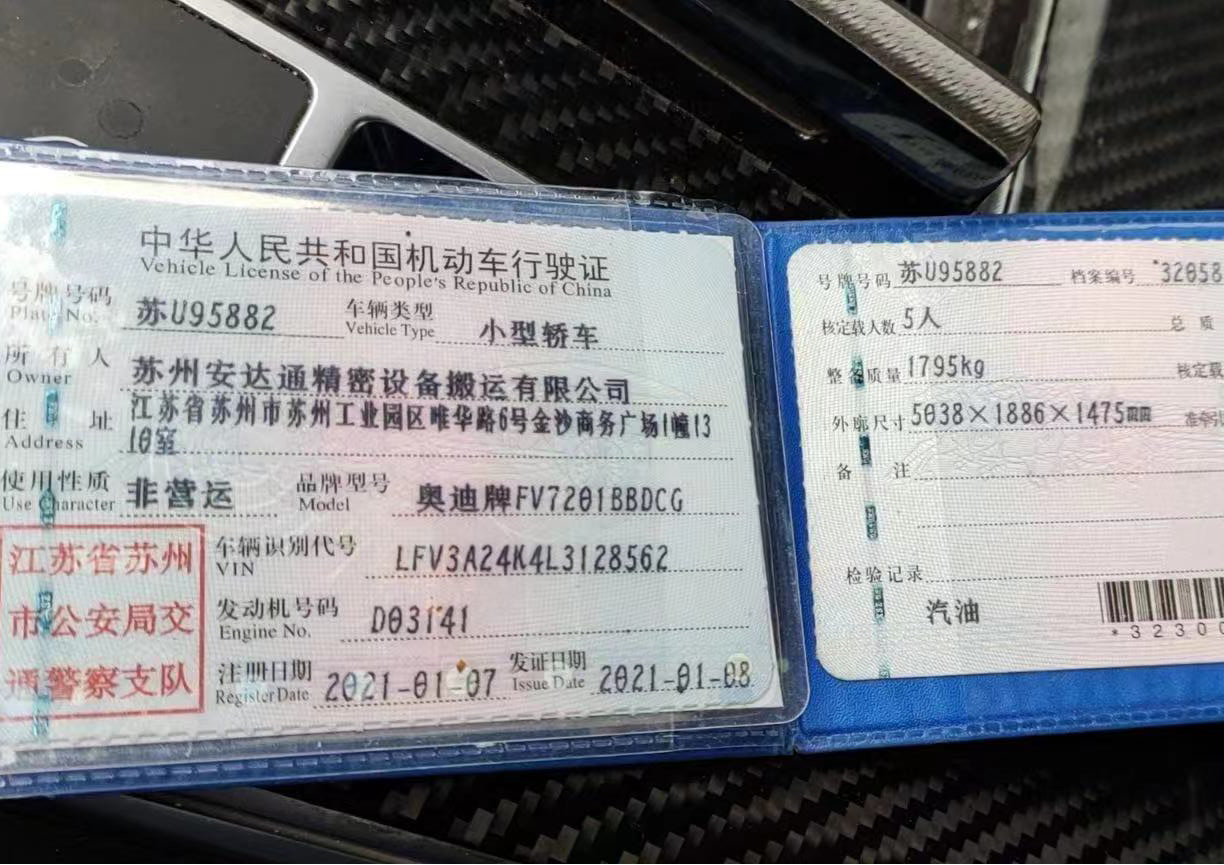 中华人民共和国机动车行驶证
Vehicle License of the People's Republic of China
号牌号码 苏U95882 车辆类型 小型轿车
Plate No. Vehicle Type
所有人 苏州安达通精密设备搬运有限公司
Owner
住址 江苏省苏州市苏州工业园区唯华路6号金沙商务广场1幢13
Address 10室
使用性质 非营运 品牌型号 奥迪牌FV7201BBDCG
Use Character Model
江苏省苏州
市公安局交
通警察支队
车辆识别代号 LFV3A24K4L3128562
VIN
发动机号码 D03141
Engine No.
注册日期 2021-01-07 发证日期 2021-01-08
Register Date Issue Date
号牌号码 苏U95882 档案编号 32058
核定载人数 5人 总质
整备质量 1795kg 核定载
外廓尺寸 5038×1886×1475mm 准牵
备注
检验记录
汽油
*32300